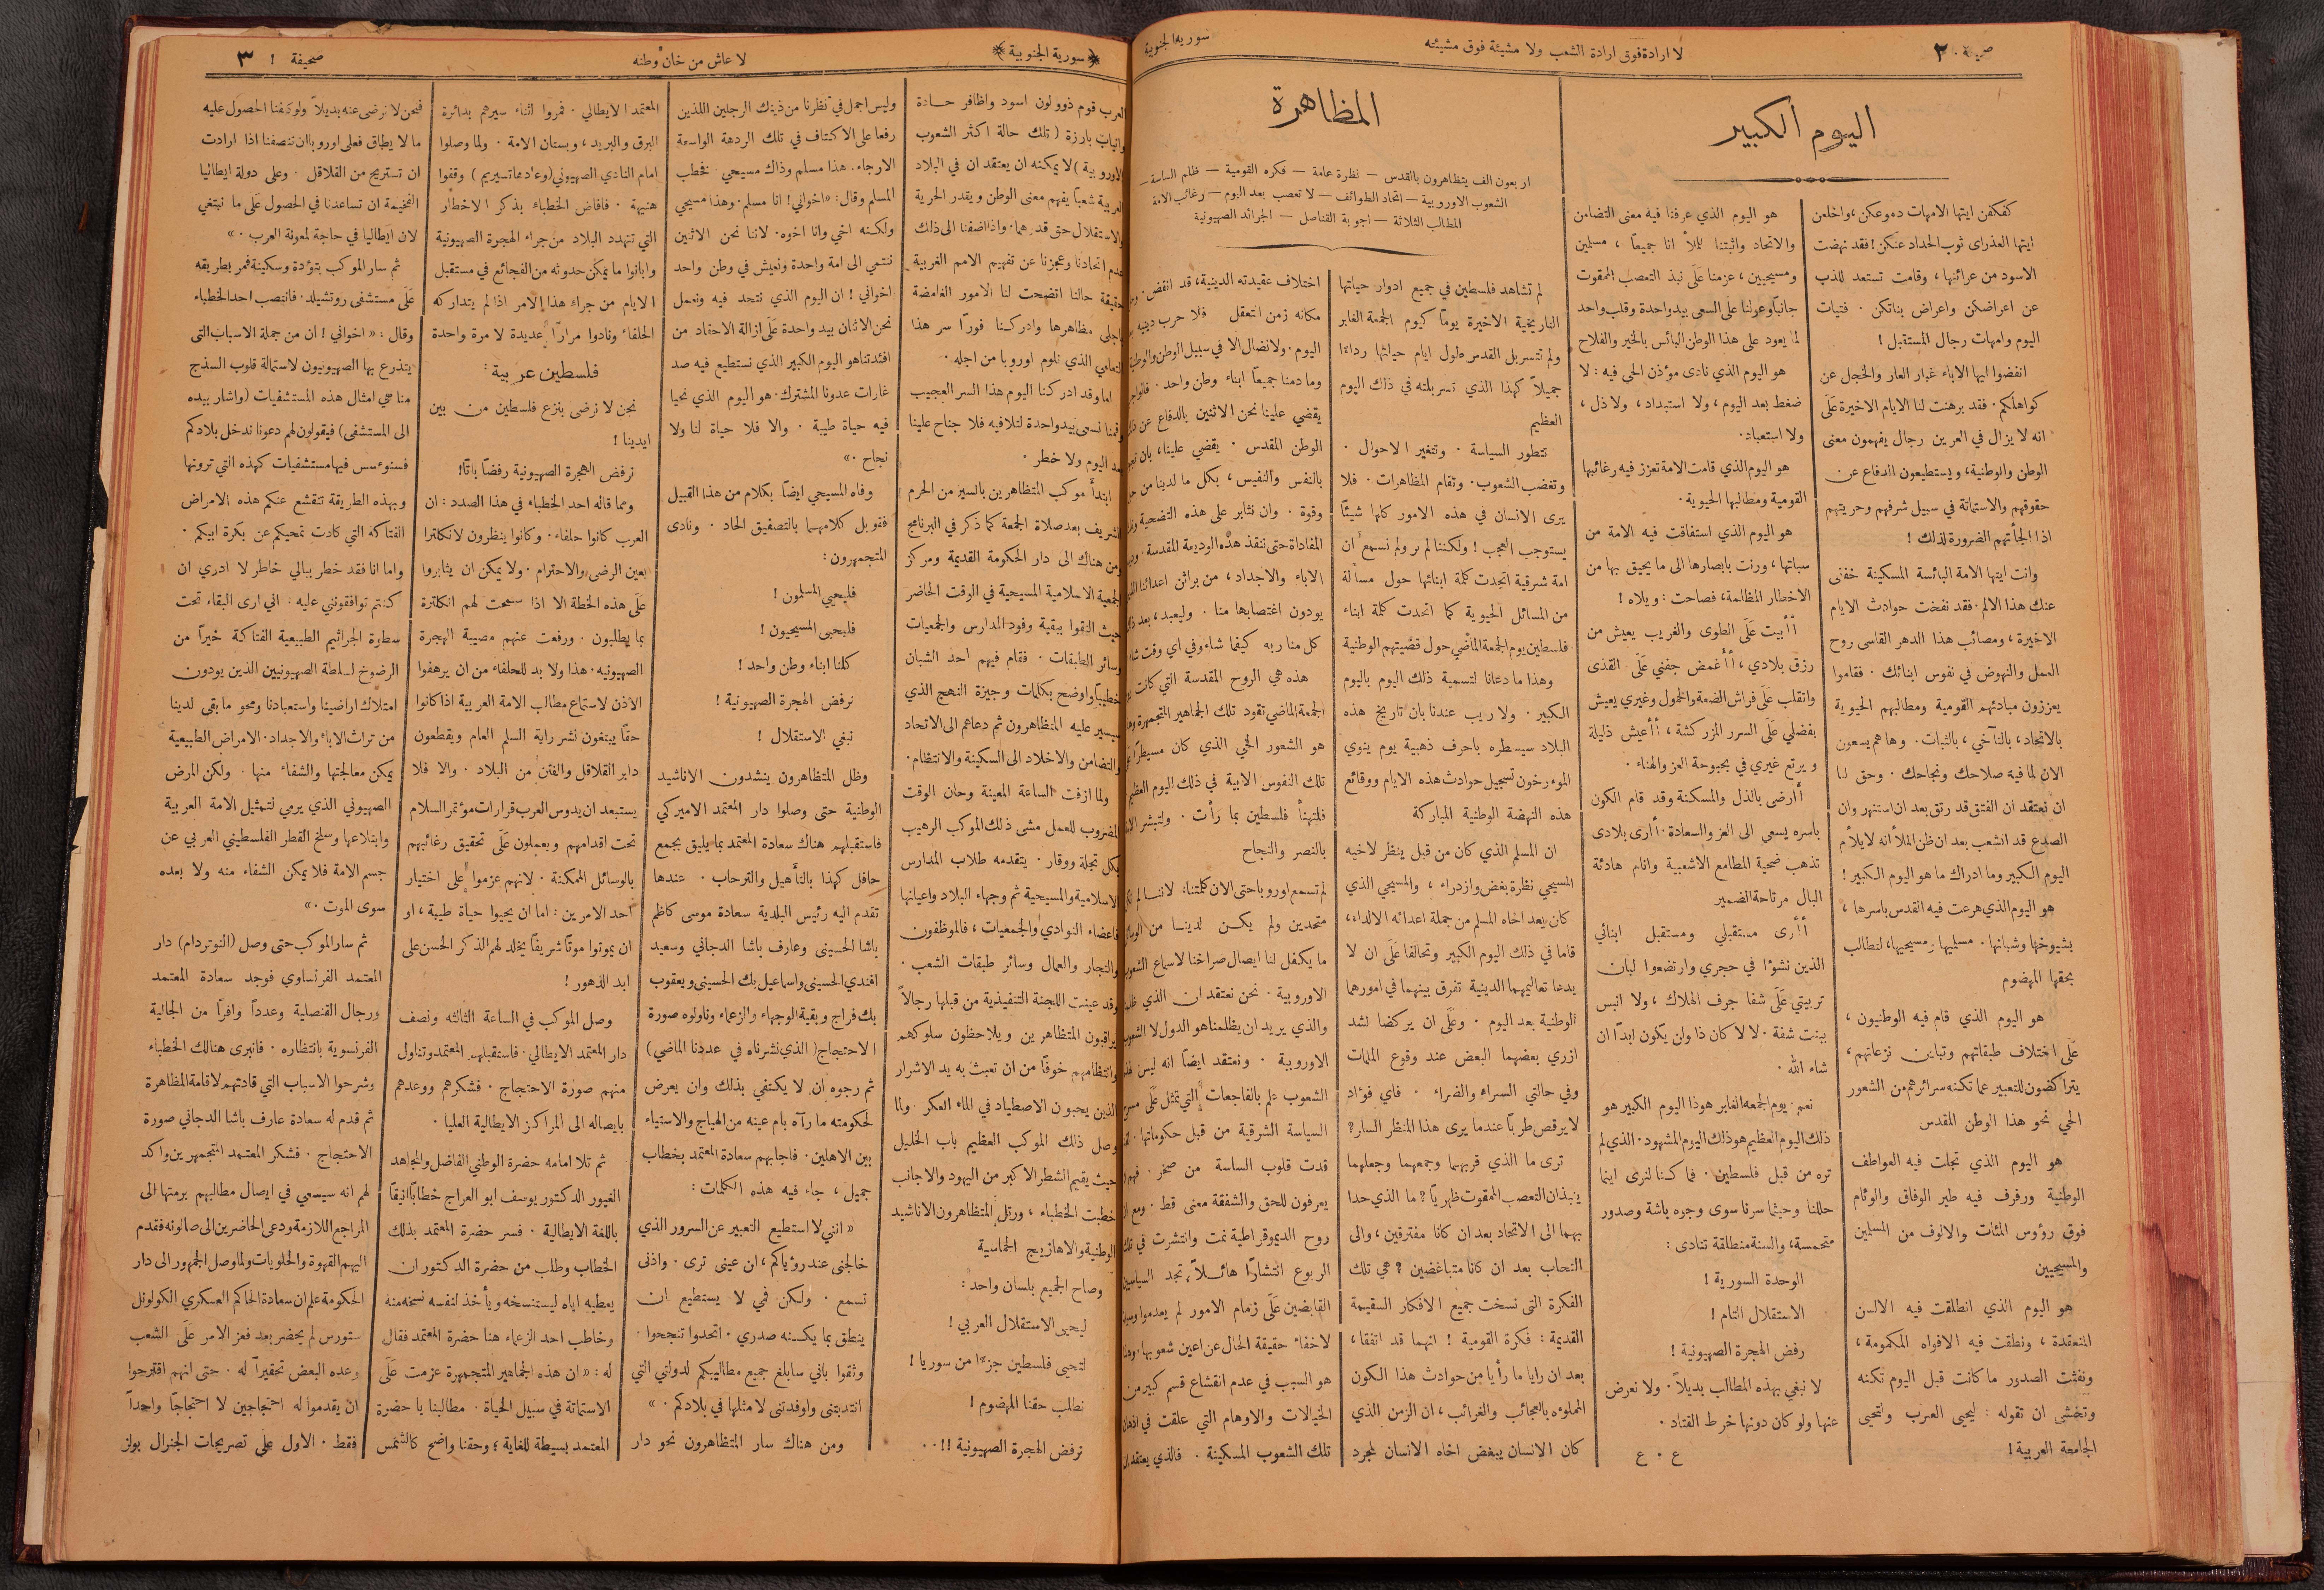 صحيفة ٢
لا ارادة فوق ارادة الشعب ولا مشيئة فوق مشيئته
سورية الجنوبية
اليوم الكبير
كفكفن ايتها الامهات دموعكن ، واخلعن
ايتها العذراى ثوب الحداد عنكن ! فقد نهضت
الاسود من عرائنها ، وقامت تستعد للذب
عن اعراضكن واعراض بناتكن . فتيات
اليوم وامهات رجال المستقبل !
انفضوا ايها الاباء غبار العار والخجل عن
كواهلكم . فقد برهنت لنا الايام الاخيرة عَلَى
انه لا يزال في العرين رجال يفهمون معنى
الوطن والوطنية ، ويستطيعون الدفاع عن
حقوقهم والاستماتة في سبيل شرفهم وحريتهم
اذا الجأتهم الضرورة لذلك !
وانت ايتها الامة البائسة المسكينة خففى
عنك هذا الالم . فقد نفخت حوادث الايام
الاخيرة ، ومصائب هذا الدهر القاسى روح
العمل والنهوض في نفوس ابنائك . فقاموا
يعززون مبادئهم القومية ومطالبهم الحيوية
بالاتحاد ، بالتآخي ، بالثبات . وها هم يسعون
الان لما فيه صلاحك ونجاحك . وحق لنا
ان نعتقد ان الفتق قد رتق بعد ان استنهر وان
الصدع قد انشعب بعد ان ظن الملأ انه لا يلأم
اليوم الكبير وما ادراك ما هو اليوم الكبير !
هو اليوم الذي هرعت فيه القدس باسرها ،
بشيوخها وشبانها . مسليها ومسيحيها، لتطالب
بحقها المهضوم
هو اليوم الذي قام فيه الوطنيون ،
عَلَى اختلاف طبقاتهم وتباين نزعاتهم ،
يتراكضون للتعبير عما تكنه سرائرهم من الشعور
الحي نحو هذا الوطن المقدس
هو اليوم الذي تجلت فيه العواطف
الوطنية ورفرف فيه طير الوفاق والوئام
فوق رؤوس المئات والالوف من المسلمين
والمسيحيين
هو اليوم الذي انطلقت فيه الالسن
المنعقدة ، ونطقت فيه الافواه المكمومة ،
ونفثت الصدور ما كانت قبل اليوم تكنه
وتخشى ان تقوله : ليحيى العرب ولتحيى
الجامعة العربية !
هو اليوم الذي عرفنا فيه معنى التضامن
والاتحاد واثبتنا للملأ انا جميعًا ، مسلمين
ومسيحيين ، عزمنا عَلَى نبذ التعصب الممقوت
جانبًا وعولنا على السعى بيد واحدة وقلب واحد
لما يعود على هذا الوطن البائس بالخير والفلاح
هو اليوم الذي نادى مؤذن الحى فيه : لا
ضغط بعد اليوم ، ولا استبداد ، ولا ذل ،
ولا استعباد .
هو اليوم الذي قامت الامة تعزز فيه رغائبها
القومية ومطالبها الحيوية .
هو اليوم الذي استفاقت فيه الامة من
سباتها ، ورنت بابصارها الى ما يحيق بها من
الاخطار المظلمة، فصاحت : ويلاه !
أأبيت عَلَى الطوى والغريب يعيش من
رزق بلادي ، أأغمض جفني عَلَى القذى
وانقلب عَلَى فراش الضعة والخمول وغيري يعيش
بفضلي عَلَى السرر المزركشة ، أأعيش ذليلة
ويرتع غيري في بحبوحة العز والهناء .
أأرضى بالذل والمسكنة وقد قام الكون
باسره يسعى الى العز والسعادة . أأرى بلادى
تذهب ضحية المطامع الاشعبية وانام هادئة
البال مرتاحة الضمير
أأرى مستقبلي ومستقبل ابنائي
الذين نشؤا في حجري وارتضعوا لبان
تربيتي عَلَى شفا جرف الهلاك ، ولا انبس
ببنت شفة . لا لا كان ذا ولن يكون ابدًا ان
شاء الله .
نعم . يوم الجمعه الغابر هوذا اليوم الكبير هو
ذلك اليوم العظيم هو ذاك اليوم المشهود . الذي لم
تره من قبل فلسطين . فما كنا لنرى اينما
حللنا وحيثما سرنا سوى وجوه باشة وصدور
متحمسة، والسنة منطلقة تنادى :
الوحدة السورية !
الاستقلال التام !
رفض الهجرة الصهيونية !
لا نبغي بهذه المطالب بديلاً . ولا نعرض
عنها ولو كان دونها خرط القتاد .
ع . ع
المظاهرة
اربعون الف يتظاهرون بالقدس — نظرة عامة — فكره القومية — ظلم الساسة —
الشعوب الاوروبية — اتحاد الطوائف — لا تعصب بعد اليوم — رغائب الامة
المطالب الثلاثة — اجوبة القناصل — الجرائد الصهيونية
لم تشاهد فلسطين في جميع ادوار حياتها
التاريخية الاخيرة يومًا كيوم الجمعة الغابر
ولم تتسربل القدس طول ايام حياتها رداءًا
جميلاً كهذا الذي تسربلته في ذاك اليوم
العظيم
تتطور السياسة . وتتغير الاحوال .
وتغضب الشعوب . وتقام المظاهرات . فلا
يرى الانسان في هذه الامور كلها شيئًا
يستوجب العجب ! ولكننا لم نر ولم نسمع ان
امة شرقية اتحدت كلمة ابنائها حول مسألة
من المسائل الحيوية كما اتحدت كلمة ابناء
فلسطين يوم الجمعة الماضي حول قضيتهم الوطنية
وهذا ما دعانا لتسمية ذلك اليوم باليوم
الكبير . ولا ريب عندنا بان تاريخ هذه
البلاد سيسطره باحرف ذهبية يوم ينوي
المؤرخون تسجيل حوادث هذه الايام ووقائع
هذه النهضة الوطنية المباركة
ان المسلم الذي كان من قبل ينظر لاخيه
المسيحي نظرة بغض وازدراء ، والمسيحي الذي
كان يعد اخاه المسلم من جملة اعدائه الالداء،
قاما في ذلك اليوم الكبير وتحالفا عَلَى ان لا
يدعا تعاليمهما الدينية تفرق بينهما في امورهما
الوطنية بعد اليوم . وعَلَى ان يركضا لشد
ازري بعضهما البعض عند وقوع الملمات
وفي حالتي السراء والضراء . فاي فؤاد
لا يرقص طربًا عندما يرى هذا المنظر السار ؟
ترى ما الذي قربهما وجمعهما وجعلهما
ينبذان التعصب الممقوت ظهريًا ؟ ما الذي حدا
بهما الى الاتحاد بعد ان كانا مفترقين ، والى
التحاب بعد ان كانا متباغضين ؟ هي تلك
الفكرة التى نسخت جميع الافكار السقيمة
القديمة : فكرة القومية ! انهما قد اتفقا ،
بعد ان رايا ما رأيا من حوادث هذا الكون
المملوءه بالعجائب والغرائب ، ان الزمن الذي
كان الانسان يبغض اخاه الانسان لمجرد
اختلاف عقيدته الدينية، قد انقض .
مكانه زمن التعقل فلا حرب دينيه
اليوم . ولا نضال الا في سبيل الوطن والوطنية
وما دمنا جميعًا ابناء وطن واحد .
يقضي علينا نحن الاثنين بالدفاع عن
الوطن المقدس . يقضي علينا ، بان
بالنفس والنفيس ، بكل ما لدينا من
وقوة . وان نثابر على هذه التضحية
المفاداة حتى ننقذ هذه الوديعة المقدسة
الاباء والاجداد ، من براثن اعدائنا
يودون اغتصابها منا . وليعبد ، بعد
كل منا ربه كيفما شاء وفي اي وقت شاء
هذه هي الروح المقدسة التي كانت
الجمعة الماضي تقود تلك الجماهير المتجمهرة
هو الشعور الحي الذي كان مسيطرًا
تلك النفوس الابية في ذلك اليوم العظيم
فلتهنأ فلسطين بما رأت . ولتبشر
بالنصر والنجاح
لم تسمع اوروبا حتى الان كلمتنا : لاننا لم
متحدين ولم يكن لدينا من
ما يكفل لنا ايصال صراخنا لاسماع الشعوب
الاوروبية . نحن نعتقد ان الذي
والذي يريد ان يظلمنا هو الدول لا الشعوب
الاوروبية . ونعتقد ايضًا انه ليس
الشعوب علم بالفاجعات التي تمثل عَلَى
السياسة الشرقية من قبل حكوماتها .
قدت قلوب الساسة من صخر .
يعرفون للحق والشفقة معنى قط .
روح الديموقراطية نمت وانتشرت في
الربوع انتشارًا هائلاً ، تجد السياسيين
القابضين عَلَى زمام الامور لم يعدموا
لاخفاء حقيقة الحال عن اعين شعوبها .
هو السبب في عدم انقشاع قسم كبير من
الخيالات والاوهام التي علقت في
تلك الشعوب المسكينة . فالذي يعتقد ان
﴿سورية الجنوبية﴾
لا عاش من خان وطنه
صحيفة ! ٣
العرب قوم ذوو لون اسود واظافر حادة
وانياب بارزة ( تلك حالة اكثر الشعوب
الاوروبية ) لا يمكنه ان يعتقد ان في البلاد
العربية شعبًا يفهم معنى الوطن ويقدر الحرية
والاستقلال حق قدرهما . واذا اضفنا الى ذلك
عدم اتحادنا وعجزنا عن تفهيم الامم الغربية
حقيقة حالنا اتضحت لنا الامور الغامضة
باجلى مظاهرها وادركنا فورًا سر هذا
التعامي الذي نلوم اوروبا من اجله .
اما وقد ادركنا اليوم هذا السر العجيب
وقمنا نسعى بيد واحدة لتلافيه فلا جناح علينا
بعد اليوم ولا خطر .
ابتدأ موكب المتظاهرين بالسير من الحرم
الشريف بعد صلاة الجمعة كما ذكر في البرنامج
ومن هناك الى دار الحكومة القديمة ومركز
الجمعية الاسلامية المسيحية في الوقت الحاضر
حيث التقوا ببقية وفود المدارس والجمعيات
وسائر الطبقات . فقام فيهم احد الشبان
خطيبًا واوضح بكلمات وجيزة النهج الذي
سيسير عليه المتظاهرون ثم دعاهم الى الاتحاد
والتضامن والاخلاد الى السكينة والانتظام .
ولما ازفت الساعة المعينة وحان الوقت
المضروب للعمل مشى ذلك الموكب الرهيب
بكل تجلة ووقار . يتقدمه طلاب المدارس
الاسلامية والمسيحية ثم وجهاء البلاد واعيانها
فاعضاء النوادي والجمعيات ، فالموظفون
والتجار والعمال وسائر طبقات الشعب .
وقد عينت اللجنة التنفيذية من قبلها رجالاً
يراقبون المتظاهرين ويلاحظون سلوكهم
وانتظامهم خوفًا من ان تعبث به يد الاشرار
الذين يحبون الاصطياد في الماء العكر . ولما
وصل ذلك الموكب العظيم باب الخليل
حيث يقيم الشطر الاكبر من اليهود والاجانب
خطبت الخطباء ، ورتل المتظاهرون الاناشيد
الوطنية والاهازيج الحماسية
وصاح الجميع بلسان واحد :
ليحيى الاستقلال العربي !
لتحيى فلسطين جزءًا من سوريا !
نطلب حقنا المهضوم !
نرفض الهجرة الصهيونية !! . .
وليس اجمل في نظرنا من ذينك الرجلين اللذين
رفعا على الاكتاف في تلك الردهة الواسعة
الارجاء . هذا مسلم وذاك مسيحي . فخطب
المسلم وقال : « اخواني ! انا مسلم . وهذا مسيحي
ولكنه اخي وانا اخوه . لاننا نحن الاثنين
ننتمي الى امة واحدة ونعيش في وطن واحد
اخواني ! ان اليوم الذي نتحد فيه ونعمل
نحن الاثنان بيد واحدة عَلَى ازالة الاحقاد من
افئدتنا هو اليوم الكبير الذي نستطيع فيه صد
غارات عدونا المشترك . هو اليوم الذي نحيا
فيه حياة طيبة . والا فلا حياة لنا ولا
نجاح . »
وفاه المسيحي ايضًا بكلام من هذا القبيل
فقوبل كلامهما بالتصفيق الحاد . ونادى
المتجمهرون :
فليحيي المسلمون !
فليحيى المسيحيون !
كلنا ابناء وطن واحد !
نرفض الهجرة الصهيونية !
نبغي الاستقلال !
وظل المتظاهرون ينشدون الاناشيد
الوطنية حتى وصلوا دار المعتمد الاميركي
فاستقبلهم هناك سعادة المعتمد بما يليق بجمع
حافل كهذا بالتأهيل والترحاب . عندها
تقدم اليه رئيس البلدية سعادة موسى كاظم
باشا الحسينى وعارف باشا الدجاني وسعيد
افندي الحسينى واسماعيل بك الحسينى ويعقوب
بك فراج وبقية الوجهاء والزعماء وناولوه صورة
الاحتجاج ( الذي نشرناه في عددنا الماضي )
ثم رجوه ان لا يكتفي بذلك وان يعرض
لحكومته ما رآه بام عينه من الهياج والاستياء
بين الاهلين . فاجابهم سعادة المعتمد بخطاب
جميل ، جاء فيه هذه الكلمات :
« انني لا استطيع التعبير عن السرور الذي
خالجنى عند رؤياكم ، ان عينى ترى . واذنى
تسمع . ولكن فمي لا يستطيع ان
ينطق بما يكنه صدري . اتحدوا تنجحوا .
وثقوا باني سابلغ جميع مطاليبكم لدولتي التي
انتدبتنى واوفدتنى لامثلها في بلادكم . »
ومن هناك سار المتظاهرون نحو دار
المعتمد الايطالي . فمروا اثناء سيرهم بدائرة
البرق والبريد ، وبستان الامة . ولما وصلوا
امام النادي الصهيوني (وعادعماتسيريم) وقفوا
هنيهة . فافاض الخطباء بذكر الاخطار
التي تتهدد البلاد من جراء الهجرة الصهيونية
وابانوا ما يمكن حدوثه من الفجائع في مستقبل
الايام من جراء هذا الامر اذا لم يتداركه
الحلفاء ونادوا مرارًا عديدة لا مرة واحدة
فلسطين عربية :
نحن لا نرضى بنزع فلسطين من بين
ايدينا !
نرفض الهجرة الصهيونية رفضًا باتًا !
ومما قاله احد الخطباء في هذا الصدد : ان
العرب كانوا حلفاء . وكانوا ينظرون لانكلترا
بعين الرضى والاحترام . ولا يمكن ان يثابروا
عَلَى هذه الخطة الا اذا سمحت لهم انكلترة
بما يطلبون . ورفعت عنهم مصيبة الهجرة
الصهيونيه . هذا ولا بد للحلفاء من ان يرهفوا
الاذن لاستماع مطالب الامة العربية اذا كانوا
حقًا يبتغون نشر راية السلم العام ويقطعون
دابر القلاقل والفتن من البلاد . والا فلا
يستبعد ان يدوس العرب قرارات مؤتمر السلام
تحت اقدامهم ويعملون عَلَى تحقيق رغائبهم
بالوسائل الممكنة . لانهم عزموا على اختيار
احد الامرين : اما ان يحيوا حياة طيبة ، او
ان يموتوا موتًا شريفًا يخلد لهم الذكر الحسن على
ابد الدهور !
وصل الموكب في الساعة الثالثه ونصف
دار المعتمد الايطالي . فاستقبلهم المعتمد وتناول
منهم صورة الاحتجاج . فشكرهم ووعدهم
بايصاله الى المراكز الايطالية العليا .
ثم تلا امامه حضرة الوطني الفاضل والمجاهد
الغيور الدكتور يوسف ابو العراج خطابًا انيقًا
باللغة الايطالية . فسر حضرة المعتمد بذلك
الخطاب وطلب من حضرة الدكتور ان
يعطيه اياه ليستنسخه ويأخذ لنفسه نسخه منه
وخاطب احد الزعماء هنا حضرة المعتمد فقال
له : « ان هذه الجماهير المتجمهرة عزمت عَلَى
الاستماتة في سبيل الحياة . مطالبنا يا حضرة
المعتمد بسيطة للغاية ؛ وحقنا واضح كالشمس
فنحن لا نرضى عنه بديلاً ولو كلفنا الحصول عليه
ما لا يطاق فعلى اوروبا ان تنصفنا اذا ارادت
ان تستريح من القلاقل . وعلى دولة ايطاليا
الفخيمة ان تساعدنا في الحصول عَلَى ما نبتغي
لان ايطاليا في حاجة لمعونة العرب . »
ثم سار الموكب بتؤدة وسكينة فمر بطريقه
عَلَى مستشفى روتشيلد . فانتصب احد الخطباء
وقال : « اخواني ! ان من جملة الاسباب التى
يتذرع بها الصهيونيون لاستمالة قلوب السذج
منا هي امثال هذه المستشفيات (واشار بيده
الى المستشفى) فيقولون لهم دعونا ندخل بلادكم
فسنؤسس فيها مستشفيات كهذه التي ترونها
وبهذه الطريقة تنقشع عنكم هذه الامراض
الفتاكه التي كادت تمحيكم عن بكرة ابيكم .
واما انا فقد خطر ببالي خاطر لا ادري ان
كنتم توافقونني عليه . اني ارى البقاء تحت
سطوة الجراثيم الطبيعية الفتاكة خيرًا من
الرضوخ لسلطة الصهيونيين الذين يودون
امتلاك اراضينا واستعبادنا ومحو ما بقى لدينا
من تراث الاباء والاجداد . الامراض الطبيعية
يمكن معالجتها والشفاء منها . ولكن المرض
الصهيوني الذي يرمي لتمثيل الامة العربية
وابتلاعها وسلخ القطر الفلسطيني العربي عن
جسم الامة فلا يمكن الشفاء منه ولا بعده
سوى الموت . »
ثم سار الموكب حتى وصل (النوتردام) دار
المعتمد الفرنساوي فوجد سعادة المعتمد
ورجال القنصلية وعددًا وافرًا من الجالية
الفرنسوية بانتظاره . فانبرى هنالك الخطباء
وشرحوا الاسباب التي قادتهم لاقامة المظاهرة
ثم قدم له سعادة عارف باشا الدجاني صورة
الاحتجاج . فشكر المعتمد المتجمهرين واكد
لهم انه سيسعى في ايصال مطالبهم برمتها الى
المراجع اللازمة ودعى الحاضرين الى صالونه فقدم
اليهم القهوة والحلويات ولما وصل الجمهور الى دار
الحكومة علم ان سعادة الحاكم العسكري الكولونل
ستورس لم يحضر بعد فعز الامر عَلَى الشعب
وعده البعض تحقيرًا له . حتى انهم اقترحوا
ان يقدموا له احتجاجين لا احتجاجًا واحدًا
فقط . الاول على تصريحات الجنرال بولز